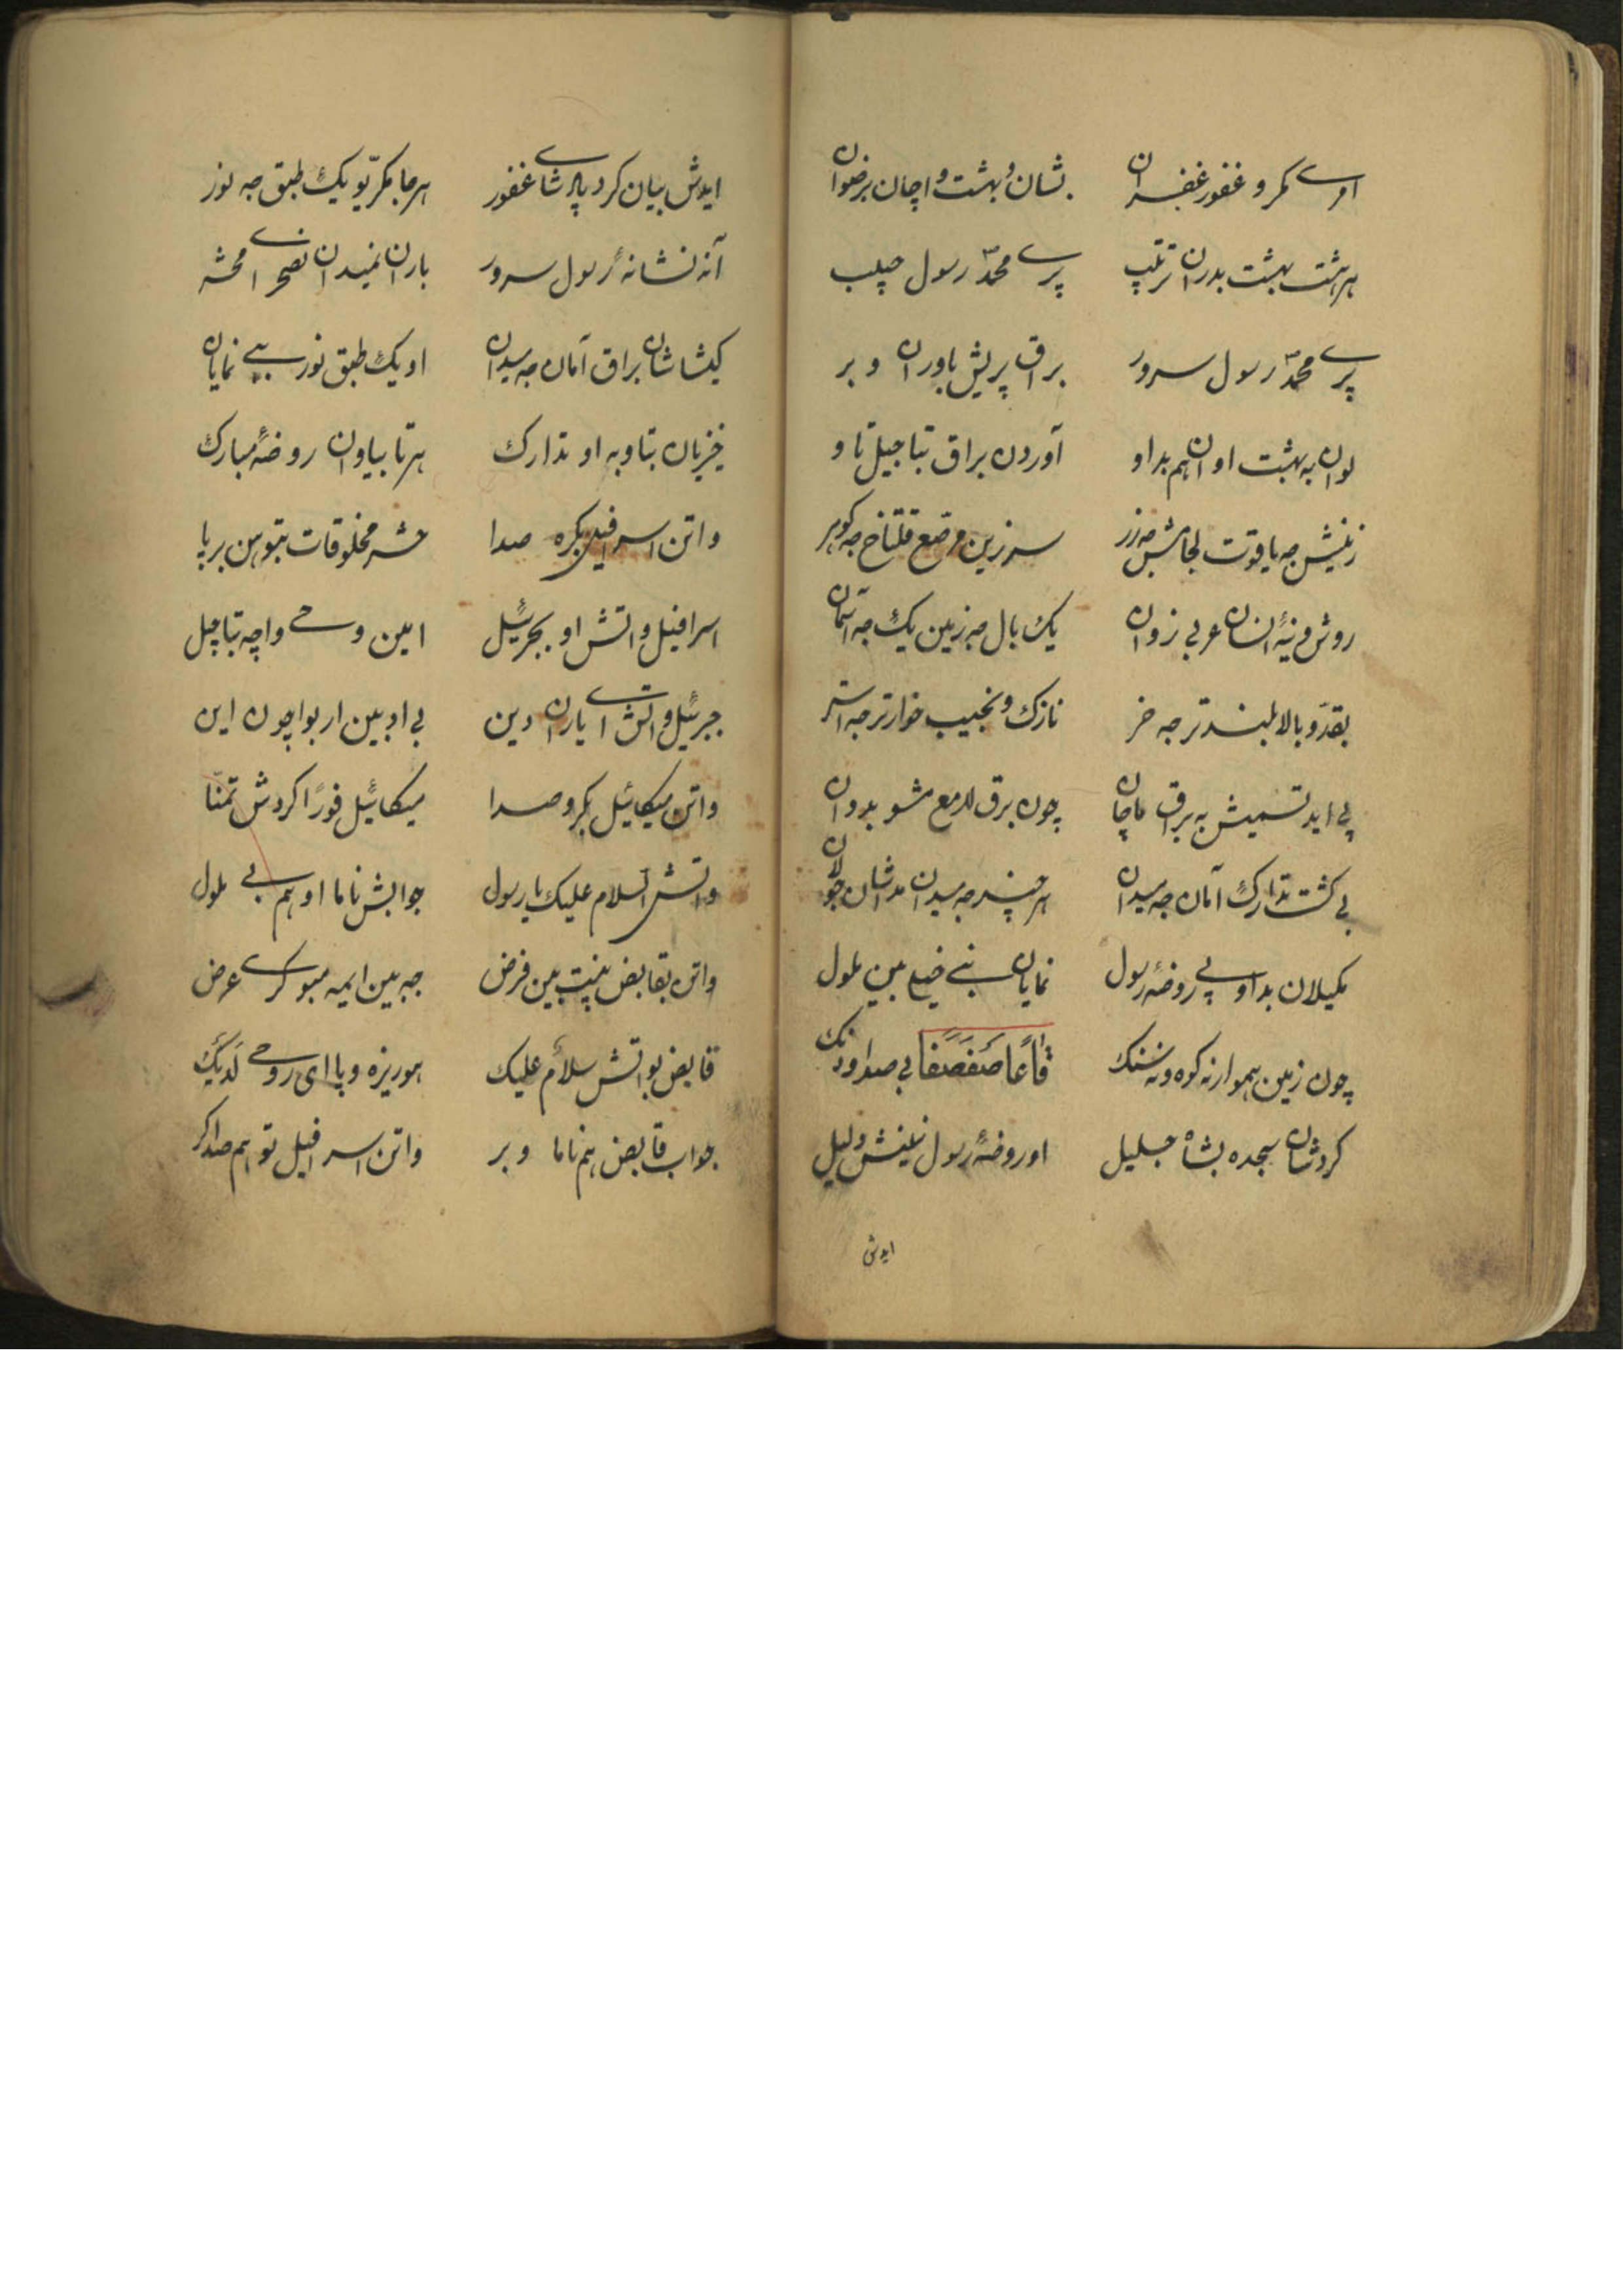 اوسے مکرو غفور غفران بشان و بهشت واچان برضوان
هر هشت بهشت بدران ترتیب پرے محمّد رسول حبیب
پرے محمّد رسول سرور براق پریش باوران و بر
لوان به بهشت اوان هم بداو آوردن براق بتاجیل تاو
زینش جه یاقوت لجامش جه زر سر زین مرصع قلتاخ جه گوهر
روش وینهٔ انسان عربی زوان یک بال جه زمین یک جه آسمان
بقد و بالا بلندتر جه خر نازک و نجیب خوارتر جه استر
پی اید تسمیش به براق ماچان چون برق لامع مشو بدوان
بی گشت تدارک آمان جه میدان هر چند جه میدان مدانشان جولان
مکیلان بداو پی روضهٔ رسول نمایان نبی ضیع بین ملول
چون زمین هموار نه کوه و نه سنگ قَاعًا صَفْصَفًا بی صدا و دنگ
کردشان سجده بشاه جلیل او روضهٔ رسول نیشنش دلیل
ایدش
ایدش بیان کرد پادشاے غفور هرجا مکرّیو یک طبق جه نور
آنه نشانهٔ رسول سرور باران نمیدان نصحراے محشر
کیشاشان براق آمان جه میدان او یک طبق نور بی نمایان
خیزیان بتاو به او تدارک هر تا بیاوان روضهٔ مبارک
واتن اسرافیل بکره صدا حشر مخلوقات بتو بین برپا
اسرافیل واتش او بجبرئیل امین وحے واچه بتاجیل
جبرئیل واتش اے یاران دین بی ادبین ار بواچون این
واتن میکائیل بکرو صدا میکائیل فورًا کردش تمنّا
واتش السلام علیک یا رسول جوابش ناما او هم بی ملول
واتن بقابض بنیت بین فرض جه بین ایمه مبو کرے عرض
قابض بواتش سلام علیک هوریزه و پا اى روحے لَدَیْکَ
جواب قابض هم ناما و بر واتن اسرافیل تو هم صدا کر